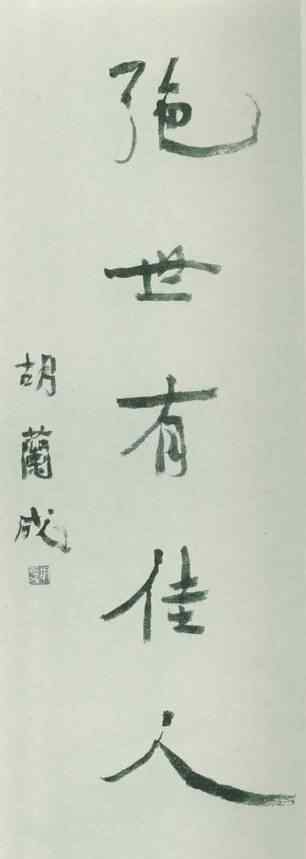 絶世有佳人
胡蘭成